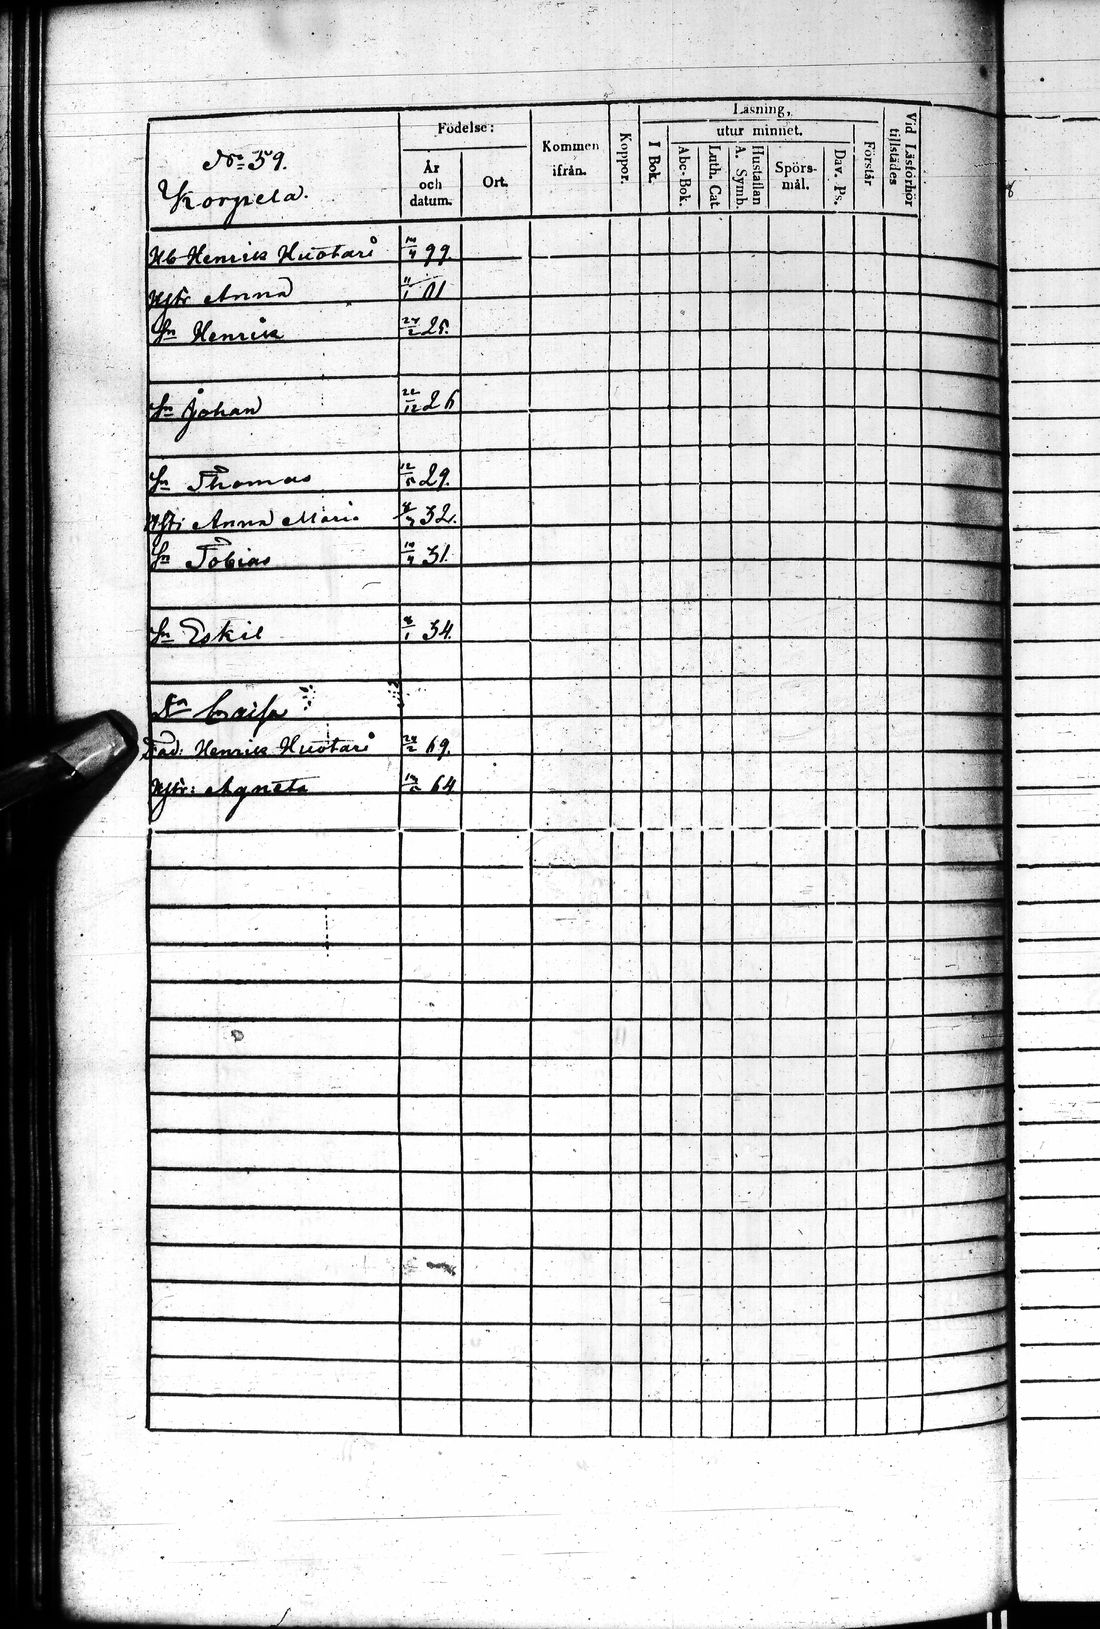 No 59.
Korpela.
Födelse:
År
och
datum.
Ort.
Kommen
ifrån.
Koppor.
Läsning,
utur minnet.
I Bok.
Abc-Bok.
Luth. Cat.
Hustaflan
A. Symb.
Spörs-
mål.
Dav. Ps.
Förstår
Vid Läsförhör
tillstädes
Hb Henrik Huotari 99.
Hstr Anna 11/1 01
Sn Henrik 25.
Sn Johan 22/12 26
Sn Thomas 12/5 29.
Anna Mari 32.
Sn Tobias 31.
Sn Eskil 34.
Dr Caisa
Fad: Henrik Huotari 69.
Hstr: Agneta 64